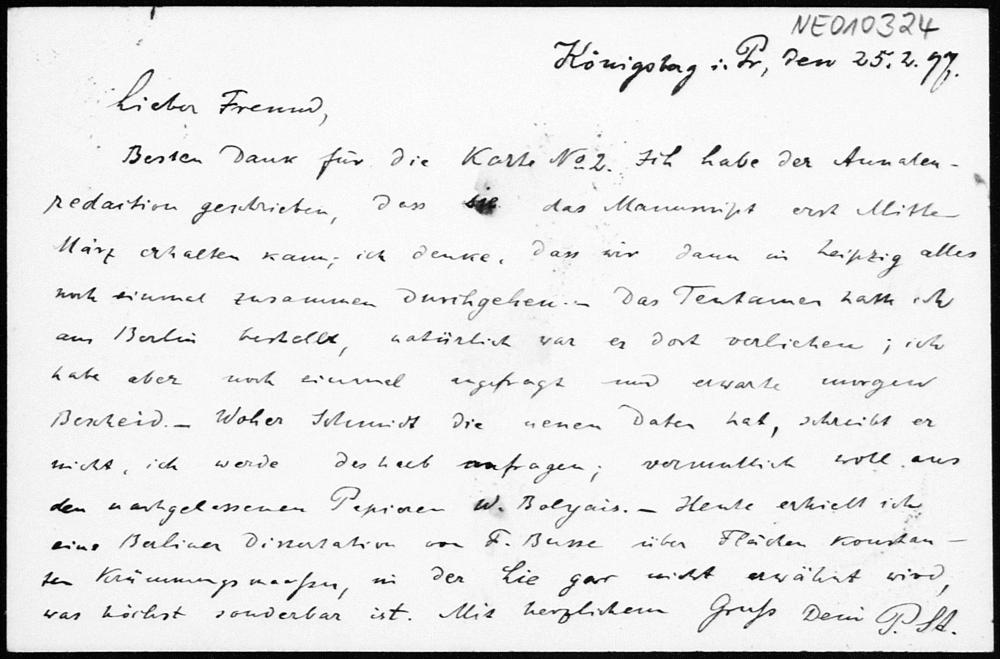 NE010324
Königsberg i. Pr, den 25. 2. 97.
Lieber Freund,
Besten Dank für die Karte No 2. Ich habe der Annalen-
redaction geschrieben, dass sie das Manuscript erst Mitte
März erhalten kann; ich denke, dass wir dann in Leipzig alles
noch einmal zusammen durchgehen. – Das Tentamen hatte ich
aus Berlin bestellt, natürlich war es dort verliehen; ich
habe aber noch einmal angefragt und erwarte morgen
Bescheid. – Woher Schmidt die neuen Daten hat, schreibt er
nicht, ich werde deshalb anfragen; vermutlich wohl aus
den nachgelassenen Papieren W. Bolyais. – Heute erhielt ich
eine Berliner Dissertation von F. Busse über Flächen konstan-
ten Krümmungsmaasses, in der Lie gar nicht erwähnt wird,
was höchst sonderbar ist. Mit herzlichem Gruß Dein P. St.